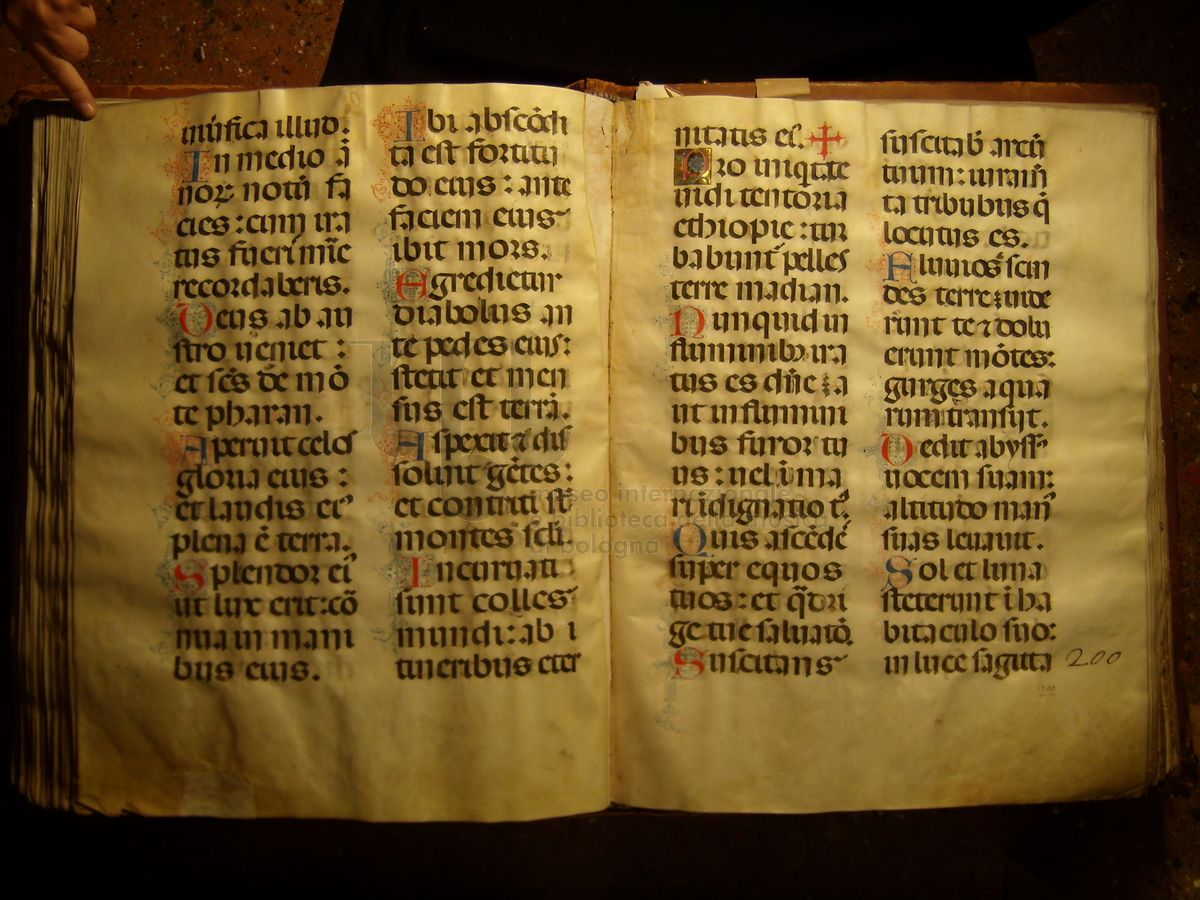 uiuifica illud.
In medio ā
noꝝ notū fa
cies: cum ira
tus fueri' mīe
recordaberis.
Deus ab au
stro ueniet :
et scs̄ de mō
te pharan.
Aperuit celos
gloria eius :
et laudis ei'
plena ē terra.
Splendor ei'
ut lux erit: cō
nua in mani
bus eius.
Ibi abscōdi
ta est fortitu
do eius : ante
faciem eius
ibit mors.
Egredietur
diabolus an
te pedes eius:
stetit et men
sus est terrā.
Aspexit ⁊ dis
soluit gētes:
et contriti st̄
montes scli.
Incuruati
sunt colles
mundi: ab i
tineribus eter
nitatis ei'.
Pro iniqtate
uidi tentoria
ethiopie: tur
babunt' pelles
terre madian.
Nunquid in
fluminib; ira
tus es dn̄e: a
ut in flumini
bus furor tu
us : uel i ma
ri idignatio t'.
Quis ascēdē
super equos
tuos : et q̄dri
ge tue saluatō.
Suscitans
suscitab' arcū
tuum: iuram̄
ta tribubus q̄
locutus es.
Fluuios scin
des terre: uide
runt te ⁊ dolu
erunt mōtes:
gurges aqua
rum trāsijt.
Dedit abyss'
uocem suam:
altitudo man'
suas leuauit.
Sol et luna
steterunt i ha
bitaculo suo:
in luce sagitta
200
museo internazionale e
biblioteca della musica
di bologna